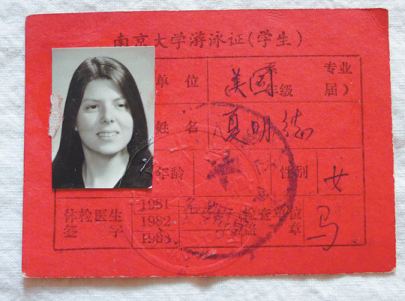 南京大学游泳证(学生)
单位 美国 年级 专业 届)
姓名 夏明德
年龄 性别 女
体检医生 签字 1981 1982 1983 检查单位 盖章 马